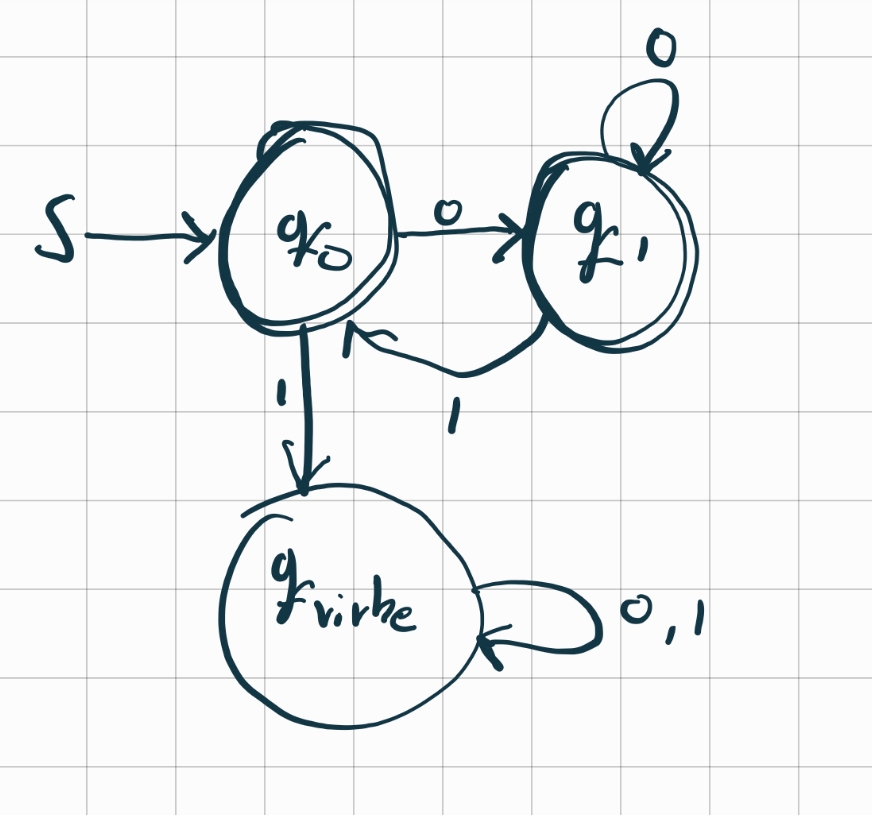 0
S
q0
0
q1
1
1
qvirhe
0,1